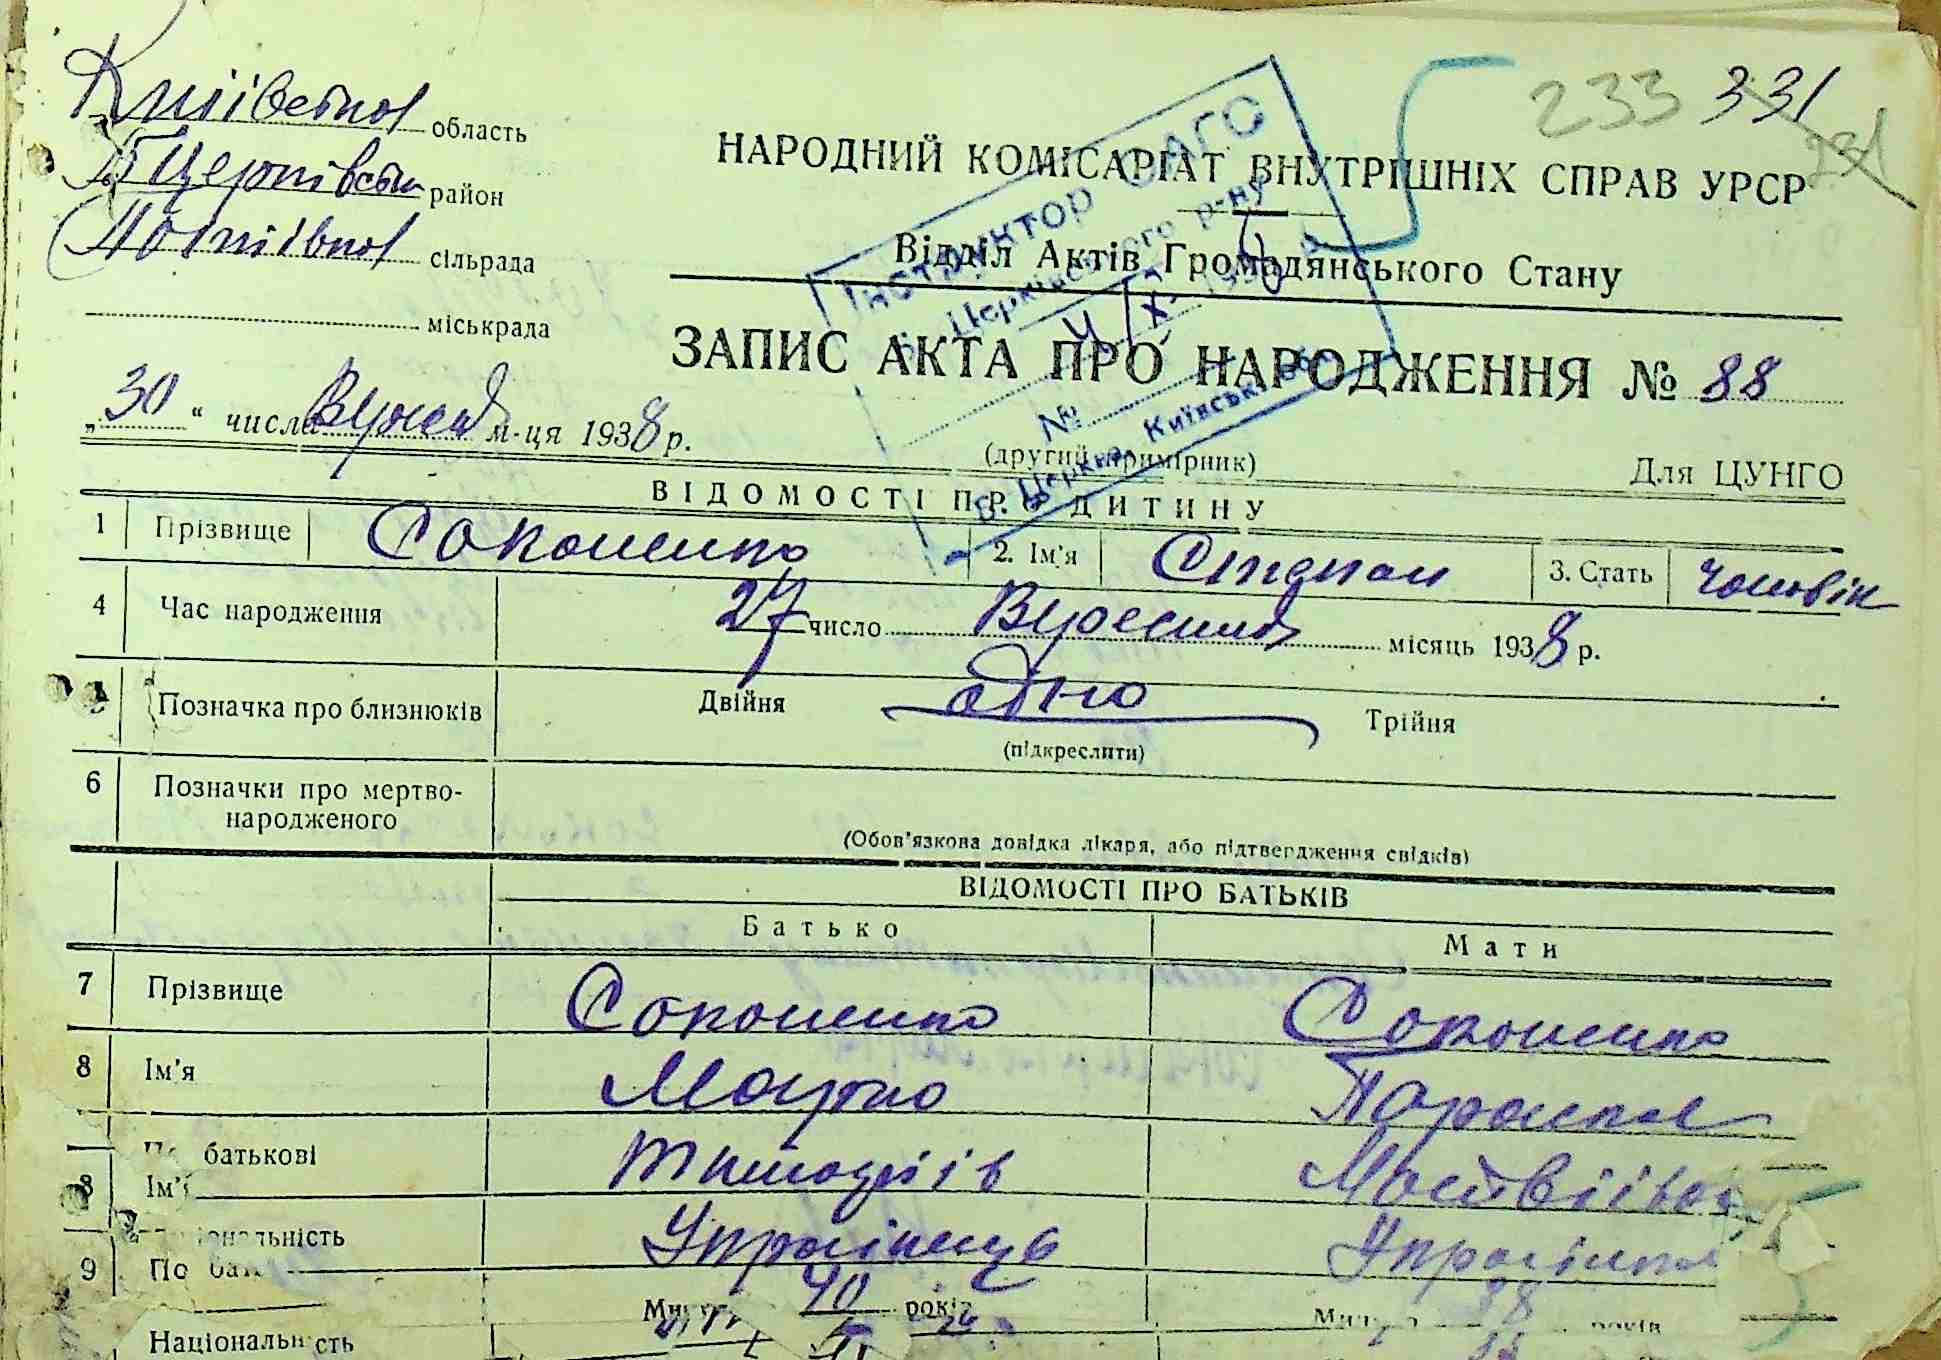 233 331
231
Київська область
Б Церківськ район
сільрада
міськрада
НАРОДНИЙ КОМІСАРІАТ ВНУТРІШНІХ СПРАВ УРСР
Відділ Актів Громадянського Стану
ІНСТРУКТОР ОАГС
Б. Церківського р-ну
4/X 1938
№
Б. Церква, Київськ
ЗАПИС АКТА ПРО НАРОДЖЕННЯ № 88
„30“ числа м-ця 1938 р.
(другий примірник) Для ЦУНГО
ВІДОМОСТІ ПРО ДИТИНУ
1 Прізвище Соколенко 2. Ім'я Степан 3. Стать чоловік
4 Час народження 27 число Вересня місяць 1938 р.
5 Позначка про близнюків Двійня одно Трійня
(підкреслити)
6 Позначки про мертво-
народженого
(Обов'язкова довідка лікаря, або підтвердження свідків)
ВІДОМОСТІ ПРО БАТЬКІВ
Батько Мати
7 Прізвище Соколенко Соколенко
8 Ім'я Марко Параска
батькові Тимофіїв Матвіївна
8 Ім'я
Українець Українка
9 По бат
40 років 38 років
Національність